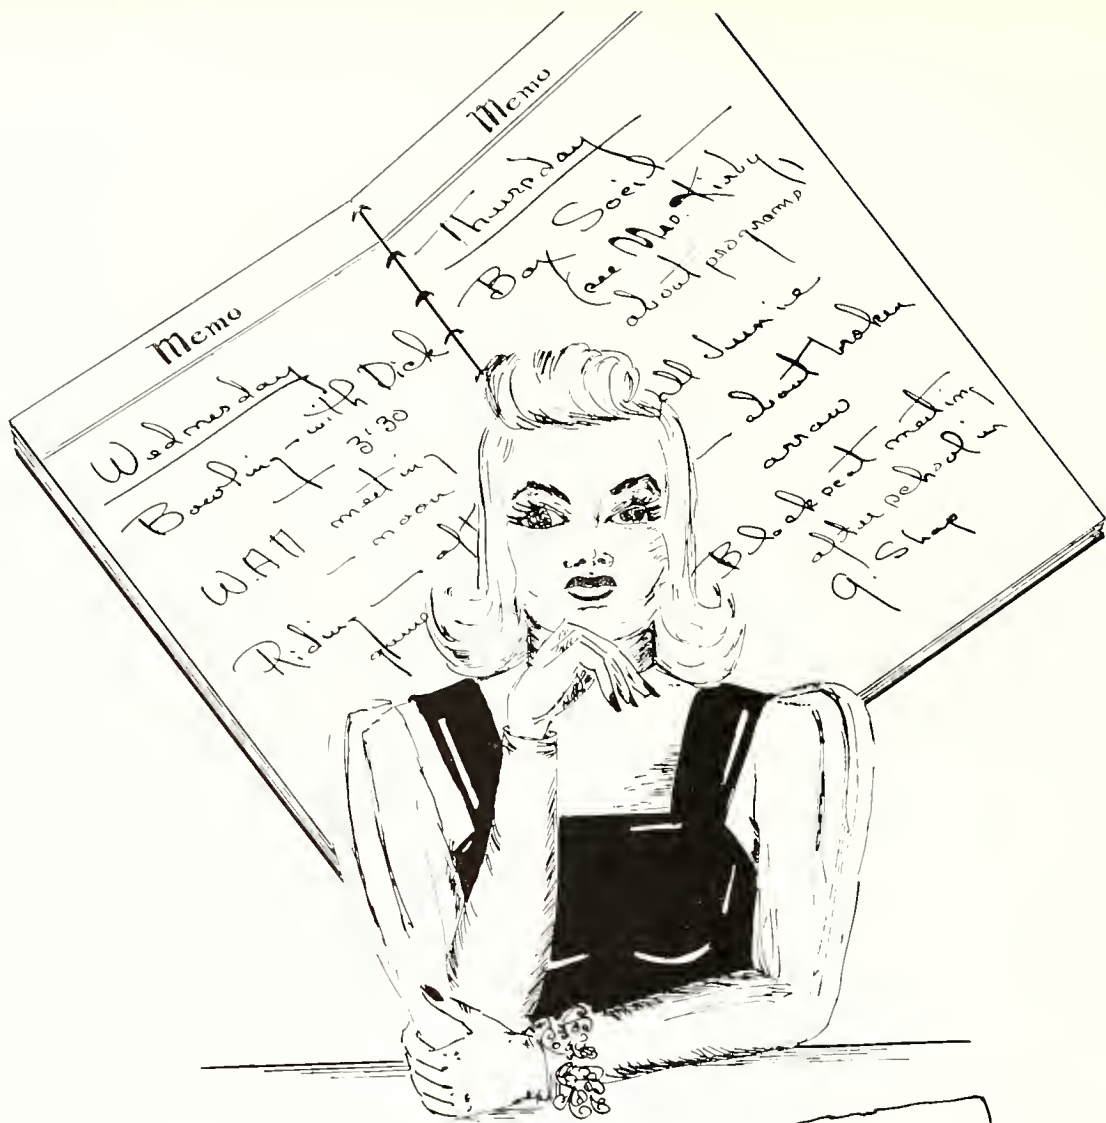 Memo
Wednesday
Bowling - with Dick
- 3:30
W.A.A meeting
- noon
Riding - aft
Memo
Thursday
Box Social
(see Mrs. Kirby
about programs)
all Junie
- about broken
arrow
Blackseat meeting
after school in
g. Shop